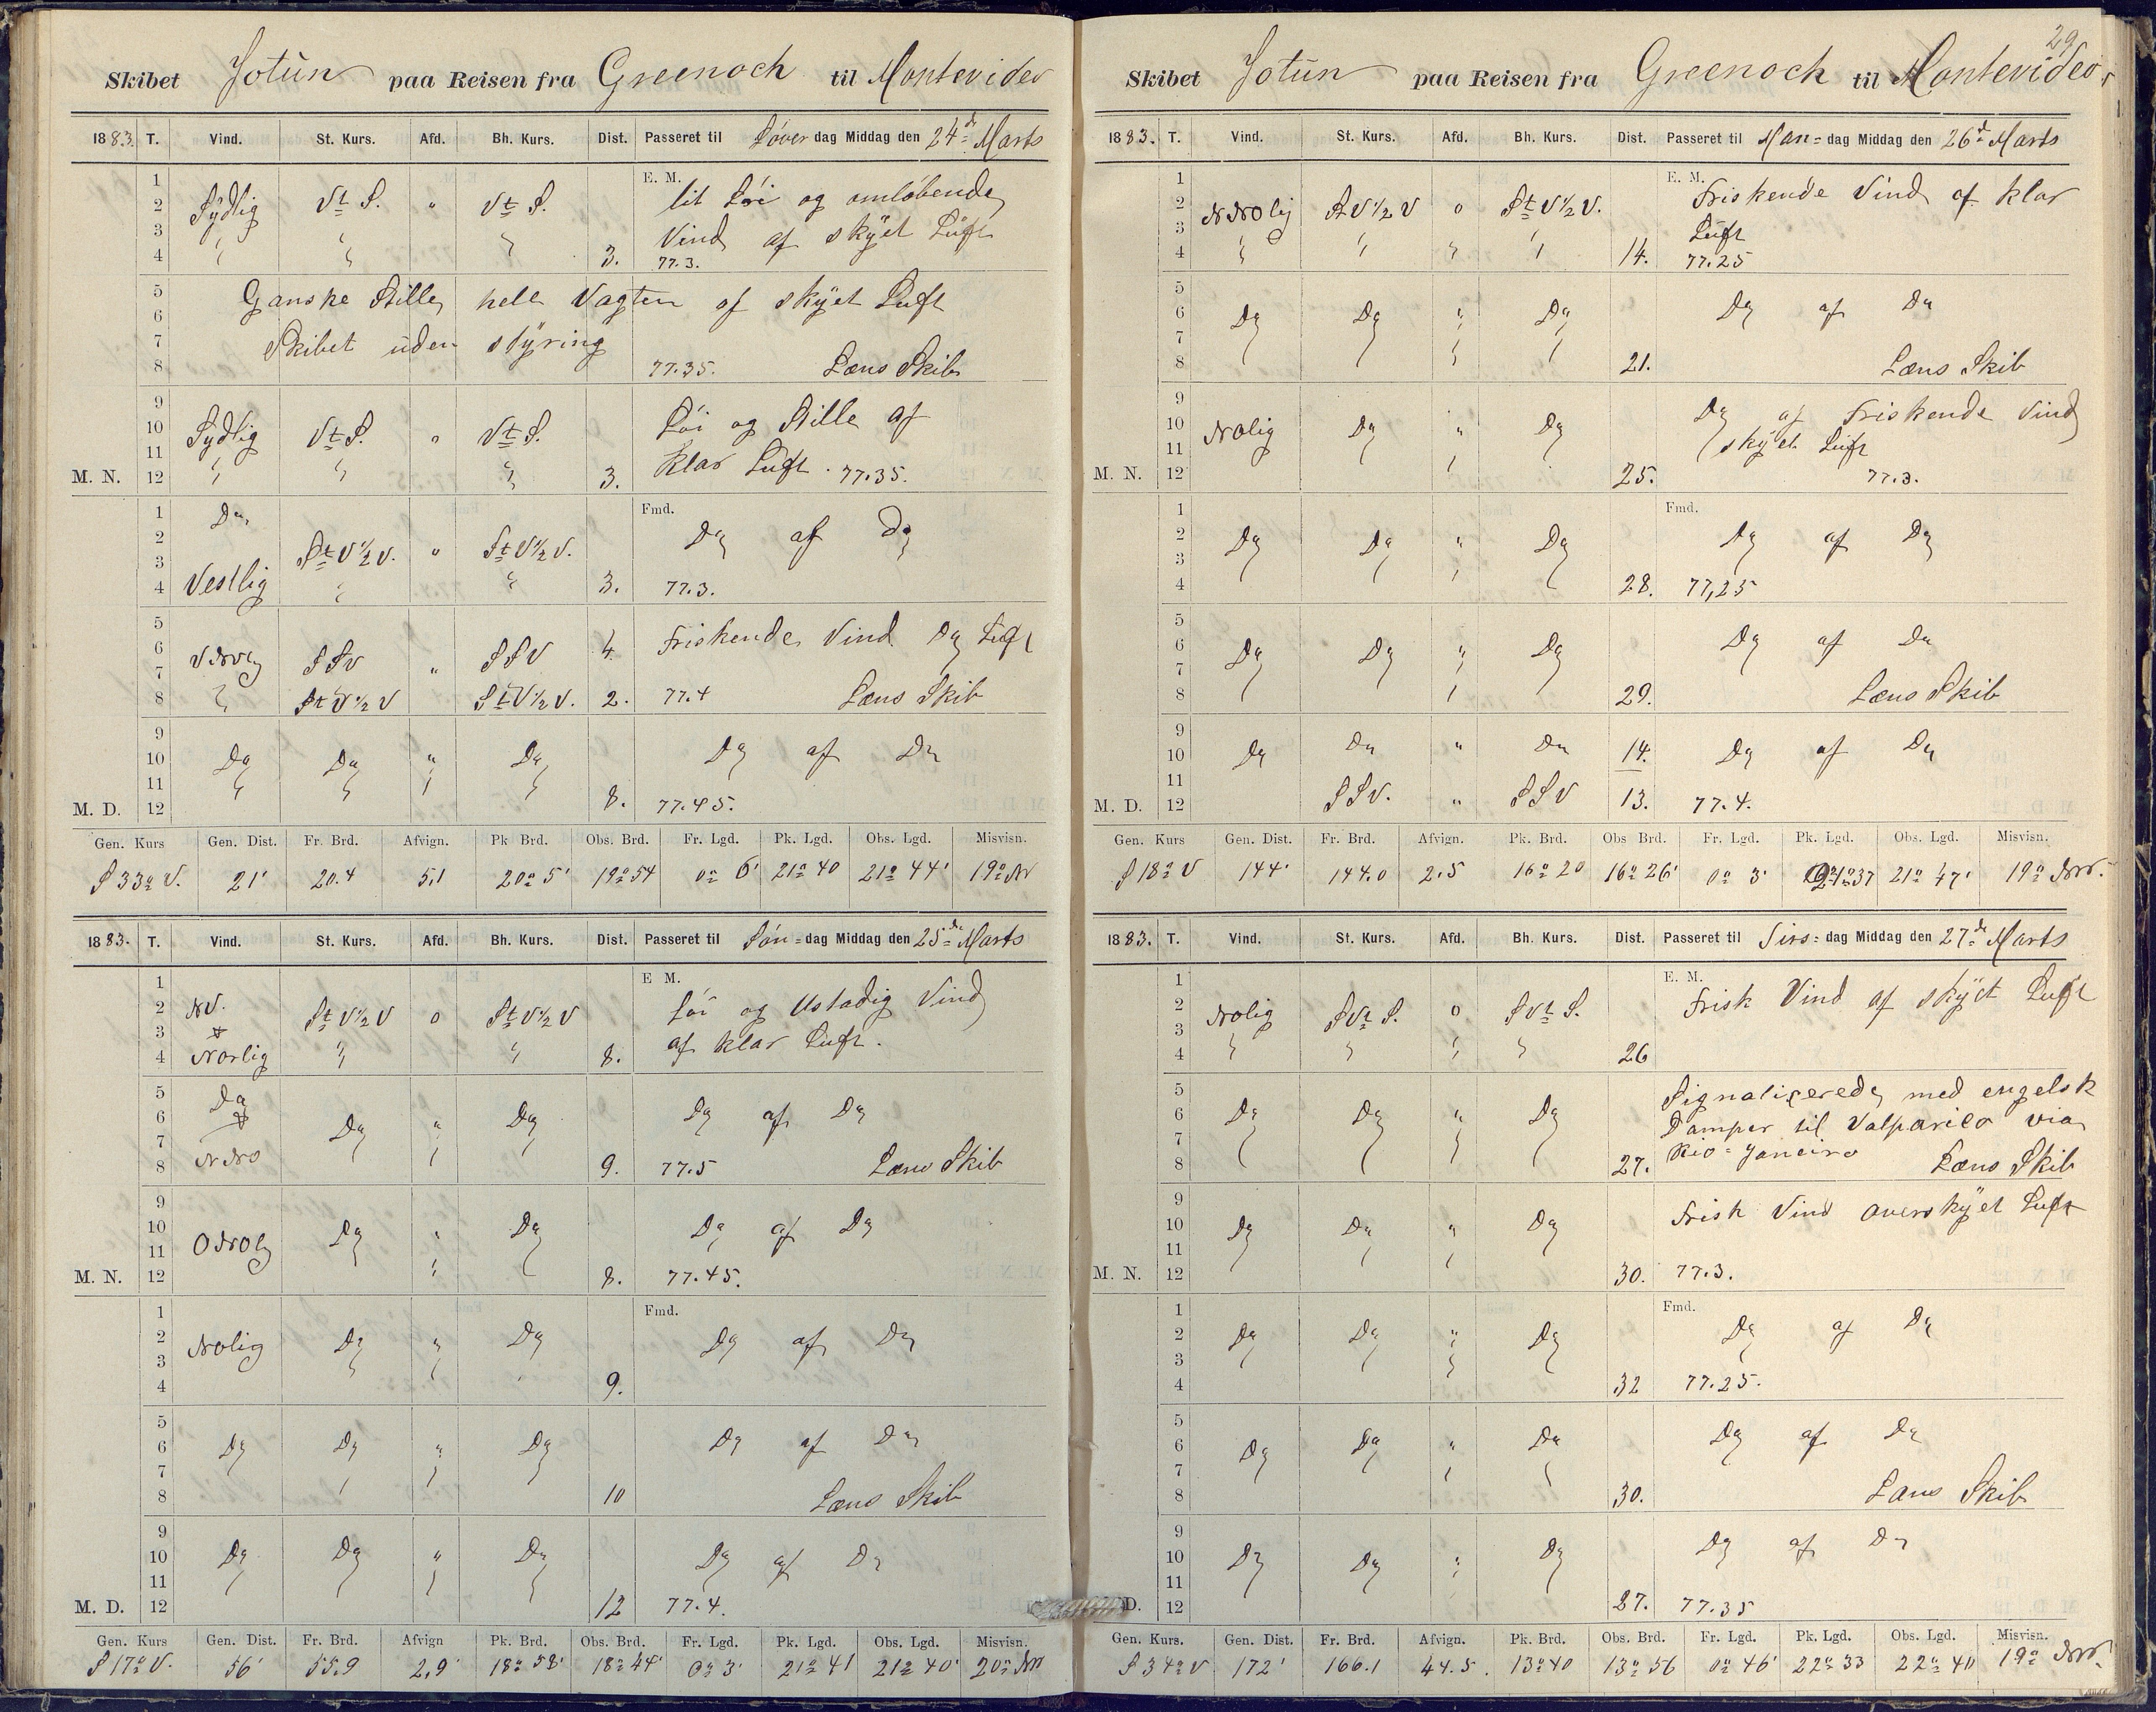 Skibet Jotun paa Reisen fra Greenock til Montevideo
1883. T. Vind. St. Kurs. Afd. Bh. Kurs. Dist. Passeret til Löver dag Middag den 24de Marts
1 E. M.
2 Sÿdlig Vt S. " Vt S. lit Löi og omlöbende
3 Vind af skÿet Lüft
4 " " " 3. 77.3.
5 Ganske Stille hele Vagten af skÿet Luft
6
7 Skibet uden stÿring
8 77.35. Læns Skib
9
10 Sydlig Vt S. " Vt S. Löi og Stille af
11 klar Luft.
M. N. 12 " " " 3. 77.35.
1 Do Fmd.
2 St V 1/2 V. " St V 1/2 V. Do af Do
3
4 Vestlig " " 3. 77.3.
5
6 VNVlig SSV " SSV 4 Friskende Vind Do Luft
7
8 " St V 1/2 V St V 1/2 V. 2. 77.4 Læns Skib
9
10 Do Do " Do Do af Do
11
M. D. 12 8. 77.45.
Gen. Kurs Gen. Dist. Fr. Brd. Afvign. Pk Brd. Obs. Brd. Fr. Lgd. Pk. Lgd. Obs. Lgd. Misvisn.
S 33° V. 21' 20.4 5,1 20° 5' 19° 54 0° 6' 21° 40 21° 44' 19° NV
1883. T. Vind. St. Kurs. Afd. Bh. Kurs. Dist. Passeret til Sön=dag Middag den 25de Marts
1 E M.
2 NV. St V 1/2 V 0 St V 1/2 V Löi og Ustadig Vind
3 af klar Luft.
4 Norlig " " 8.
5 Do
6 Do " Do Do af Do
7
8 NNO 9. 77.5 Læns Skib
9
10 Do " Do Do af Do
11 ONOlig
M. N. 12 8. 77.45.
1 Fmd.
2 NOlig Do " Do Do af Do
3
4 9.
5
6 Do Do " Do Do af Do
7
8 10 Læns Skib
9
10 Do Do " Do Do af Do
11
M. D. 12 12 77.4.
Gen. Kurs Gen. Dist. Fr. Brd. Afvign Pk. Brd. Obs. Brd. Fr. Lgd. Pk. Lgd. Obs. Lgd. Misvisn.
S 17° V. 56' 55.9 2,9' 18° 58' 18° 44' 0° 3' 21° 41 21° 40' 20° NV
29
Skibet Jotun paa Reisen fra Greenock til Montevideo
1883. T. Vind. St. Kurs. Afd. Bh. Kurs. Dist. Passeret til Man=dag Middag den 26de Marts
1 E. M. Friskende Vind af klar
2 NNOlig St V 1/2 V 0 St V 1/2 V.
3 Luft
4 " " " " 14. 77.25
5
6 Do Do " Do Do af Do
7
8 21. Læns Skib
9
10 NOlig Do " Do Do af Friskende Vind
11 skÿet Lüft
M. N. 12 25. 77.3.
1 Fmd.
2 Do Do " Do Do af Do
3
4 28. 77,25
5
6 Do Do " Do Do af Do
7
8 29. Læns Skib
9
10 Do Do " Do 14. Do af Do
11
M. D. 12 SSV. " SSV 13. 77.4.
Gen. Kurs Gen. Dist. Fr. Brd. Afvign. Pk. Brd. Obs Brd. Fr. Lgd. Pk. Lgd. Obs. Lgd. Misvisn.
S 18° V 144' 144.0 2.5 16° 20 16° 26' 0° 3' 21° 37 21° 47' 19° NV.
1883. T. Vind. St. Kurs. Afd. Bh. Kurs. Dist. Passeret til Tirs=dag Middag den 27de Marts
1 E. M.
2 NOlig SVt S. 0 SVt S. Frisk Vind af skÿet Luft
3
4 " " " " 26
5 Signaliserede med engelsk
6 Do Do " Do Damper til Valpariso via
7 Rio=Janeiro
8 27. Læns Skib
9 Frisk Vind overskÿet Luft
10 Do Do " Do
11
M. N. 12 30. 77.3.
1 Fmd.
2 Do Do " Do Do af Do
3
4 32 77.25.
5
6 Do Do " Do Do af Do
7
8 30. Læns Skib
9
10 Do Do " Do Do af Do
11
D. 12 27. 77.35
Gen. Kurs. Gen. Dist. Fr. Brd. Afvign. Pk. Brd. Obs. Brd. Fr. Lgd. Pk. Lgd. Obs. Lgd. Misvisn.
S 34° V 172' 166.1 44.5. 13° 40 13° 56 0° 46' 22° 33 22° 40 19° NV.